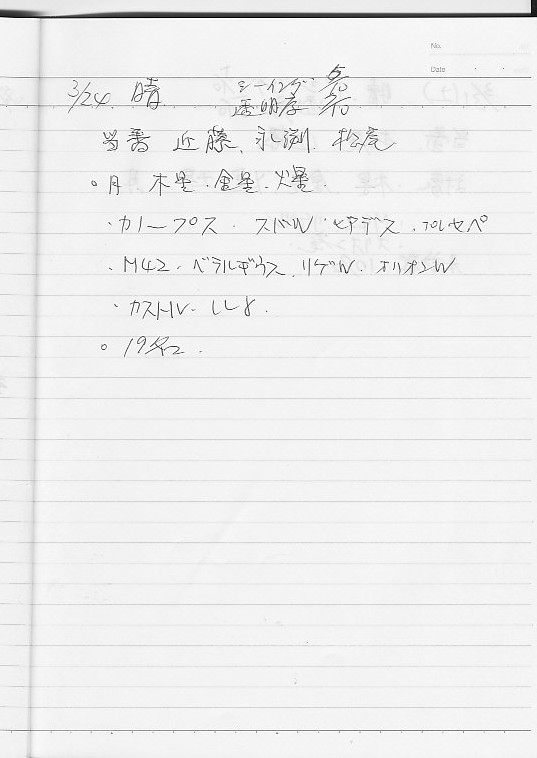 No.
Date
3/24. 晴 シーイング
透明度
当番 近藤、永渕. 松尾
○月 木星・金星・火星.
・カノープス・スバル・ヒヤデス・プレセペ
・M42・ベテルギウス.リゲル.オリオンW
・カストル.しし8.
○ 19名.